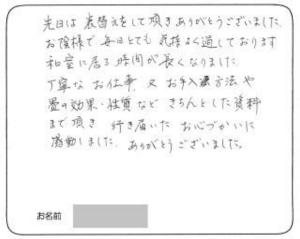 先日は 表替えをして頂きありがとうございました。
お陰様で 毎日とても 気持よく過しております
和室に居る 時間が 長くなりました。
丁寧な お仕事、又 お手入れ方法や
畳の効果・性質など きちんとした資料
まで頂き 行き届いた お心づかいに
感動しました。ありがとうございました。
お名前